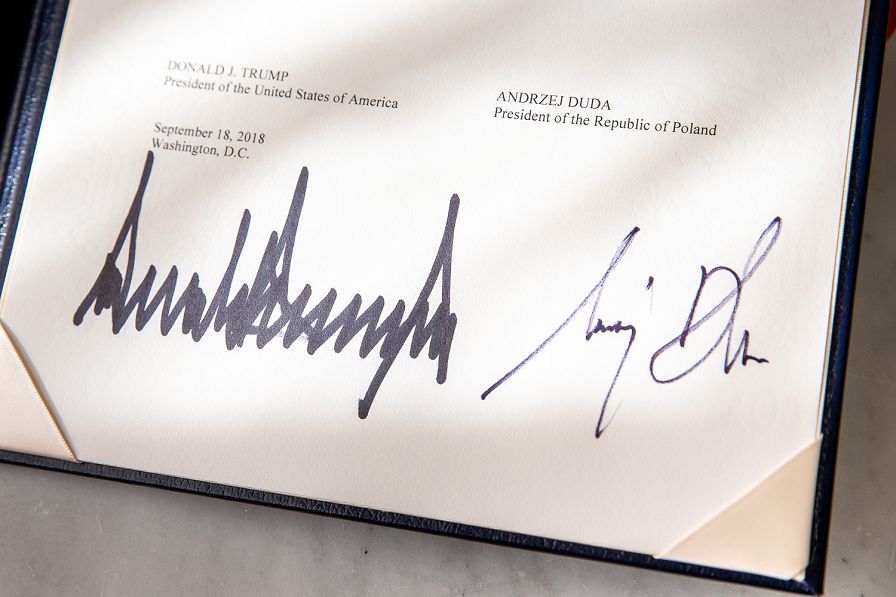 DONALD J. TRUMP
President of the United States of America
September 18, 2018
Washington, D.C.
ANDRZEJ DUDA
President of the Republic of Poland